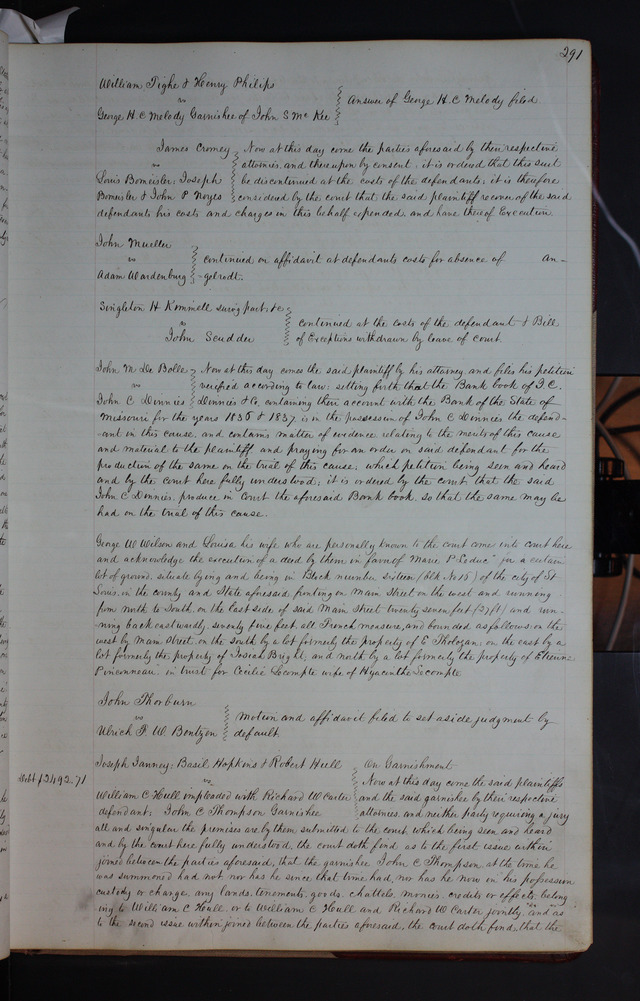 291
William Tighe & Henry Philips
vs
Answer of George H. C Melody filed
George H. C Melody Garnishee of John S Mc Kee
James Cromey Now at this day come the parties aforesaid by their respective
vs attornies and thereupon by consent, it is ordered that this suit
Louis Bomeisler, Joseph be discontinued at the costs of the defendants, it is therefore
Bomeisler & John P Noyes considered by the court that the said plaintiff recover of the said
defendants his costs and charges in this behalf expended and have thereof Execution
John Mueller
vs continued on affidavit at defendants costs for absence of an-
Adam Wardenburg -gelrodt.
Singleton H Kimmell surviving part; &c
vs continued at the costs of the defendant & Bill
John Scudder of Exceptions withdrawn by leave of court.
John M De Bolle Now at this day comes the said plaintiff by his attorney and files his petition
vs verified according to law: setting forth that the Bank book of J. C.
John C Dinnies Dinnies & Co. containing their account with the Bank of the State of
Missouri for the years 1836 & 1837, is in the possession of John C Dinnies the defend-
ant in this cause, and contains matter of evidence relating to the merits of this cause
and material to the plaintiff and praying for an order on said defendant for the
production of the same on the trial of this cause, which petition being seen and heard
and by the court here fully understood; it is ordered by the court that the said
John C Dinnies, produce in Court the aforesaid Bank book, so that the same may be
had on the trial of this cause.
George W Wilson and Louisa his wife who are personally known to the court come into court here
and acknowledge the execution of a deed by them in favor of Marie P Leduc for a certain
lot of ground, situate lying and being in Block number sixteen (blk No 16) of the city of St
Louis, in the county and State aforesaid, fronting on Main Street on the west and running
from north to South, on the east side of said Main Street twenty seven feet (27ft) and run-
ning back eastwardly, seventy five feet, all French measure, and bounded as follows: on the
west by Main Street, on the south by a lot formerly the property of C Tholozan, on the east by a
lot formerly the property of Josiah Bright, and north by a lot formerly the property of Etienne
Pinconneau, in trust for Cecilie Lecompte wife of Hyacinthe Lecompte
John Thorburn
vs Motion and affidavit filed to set aside judgment by
Ulrich F. W. Bentzen default.
Joseph Janney, Basil Hopkins & Robert Hull On Garnishment
Debt $3492.71 vs Now at this day come the said plaintiffs
William C Hull impleaded with Richard W Carter and the said garnishee by their respective
defendant: John C Thompson Garnishee attornies, and neither party requiring a jury
all and singular the premises are by them submitted to the court, which being seen and heard
and by the court here fully understood, the court doth find as to the first issue within
joined between the parties aforesaid, that the garnishee John C Thompson at the time he
was summoned had not nor has he since that time had, nor has he now in his possession
custody or charge, any lands, tenements, goods, chattels, monies, credits or effects, belong-
ing to William C Hull, or to William C Hull and Richard W Carter jointly, and as
to the second issue within joined between the parties aforesaid, the court doth find, that the